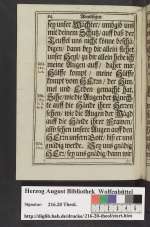 84 Abendsegen
sey unser Wächter/ umbgib uns
mit deinem Schutz/ auff daß der
Teuffel uns nicht könne beschä-
digen/ dann sey du allein stehet
unser Hertz/ zu dir allein hebe ich
meine Augen auff/ daher mir
Hülffe kompt/ meine Hülffe
kompt vom HErrn/ der Him-
mel und Erden gemacht hat.
Sihe/ wie die Augen der Knech-
te auff die Hände ihrer Herren
sehen/ wie die Augen der Magd
auff die Hände ihrer Frauen/
also sehen unsere Augen auff den
HErrn unsern Gott/ biß er uns
gnädig werde. Sey uns gnädig
HErr/ sey uns gnädig/ dann wir
Herzog August Bibliothek Wolfenbüttel
Signatur: 216.20 Theol.
http://diglib.hab.de/drucke/216-20-theol/start.htm